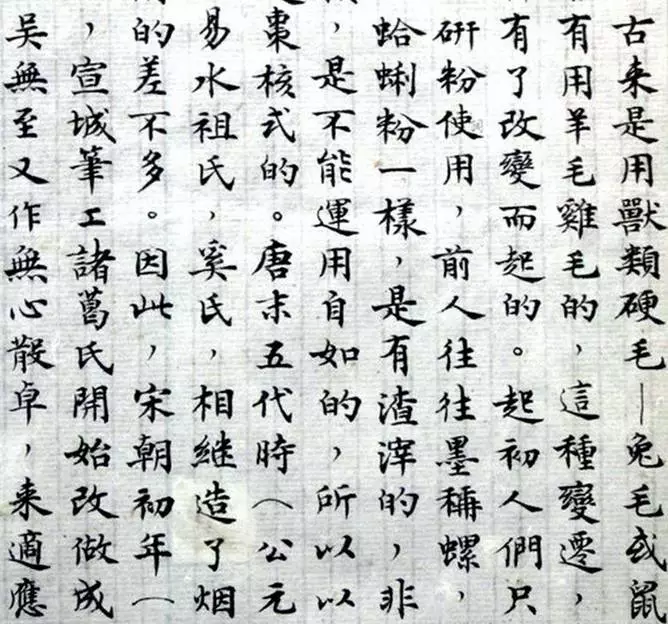 古来是用獸類硬毛—兔毛或鼠
有用羊毛雞毛的，這種變遷，
有了改變而起的。起初人們只
研粉使用，前人往往墨稱螺，
蛤蜊粉一樣，是有渣滓的，非
，是不能運用自如的，所以以
棗核式的。唐末五代時（公元
易水祖氏，奚氏，相継造了烟
的差不多。因此，宋朝初年（
，宣城筆工諸葛氏開始改做成
吴無至又作無心散卓，来適應